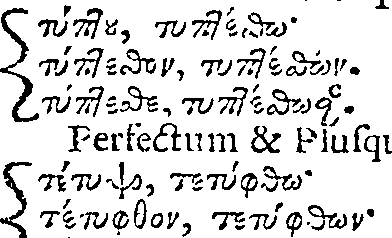 τύπτου, τυπτέσθω·
τύπτεσθον, τυπτέσθων.
τύπτεσθε, τυπτέσθωσαν.
Perfectum & Pluſqu
τέτυψο, τετύφθω·
τέτυφθον, τετύφθων·